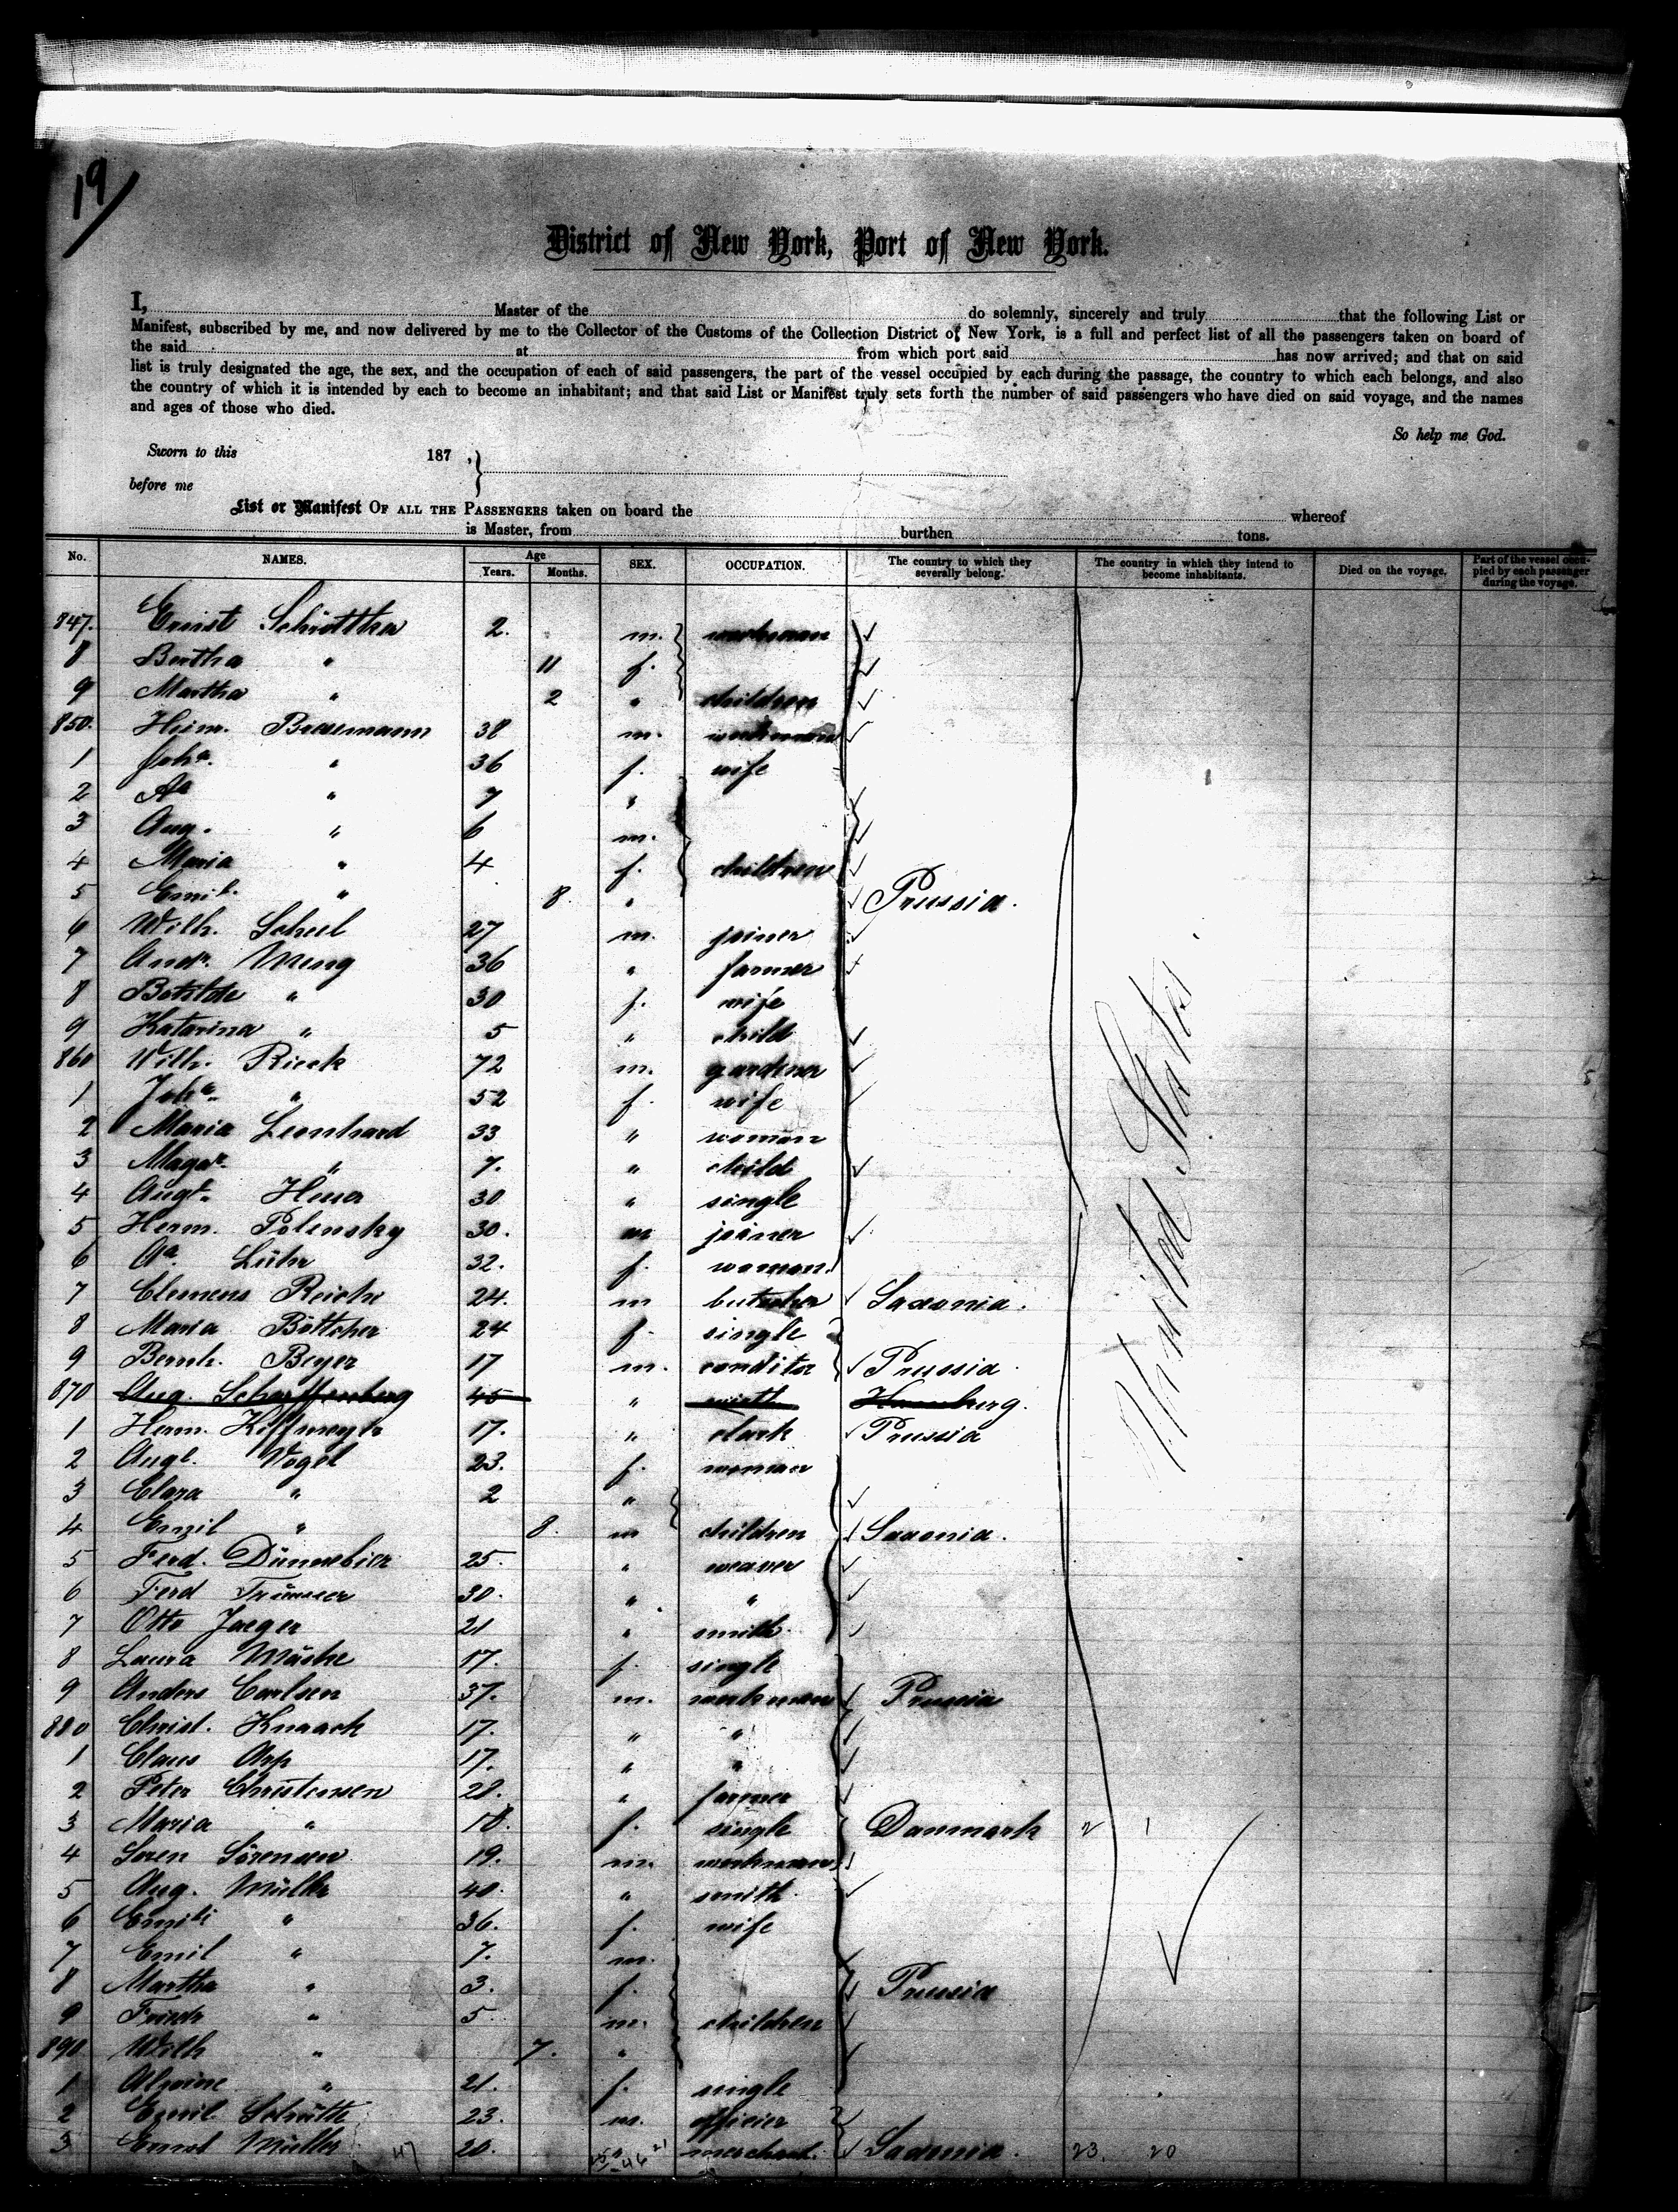 19/
District of New York, Port of New York.
I, Master of the do solemnly, sincerely and truly that the following List or
Manifest, subscribed by me, and now delivered by me to the Collector of the Customs of the Collection District of New York, is a full and perfect list of all the passengers taken on board of
the said at from which port said has now arrived; and that on said
list is truly designated the age, the sex, and the occupation of each of said passengers, the part of the vessel occupied by each during the passage, the country to which each belongs, and also
the country of which it is intended by each to become an inhabitant; and that said List or Manifest truly sets forth the number of said passengers who have died on said voyage, and the names
and ages of those who died.
So help me God.
Sworn to this 187 ,
before me
List or Manifest OF ALL THE PASSENGERS taken on board the whereof
is Master, from burthen tons.
No. NAMES. Age Years. Months. SEX. OCCUPATION. The country to which they severally belong. The country in which they intend to become inhabitants. Died on the voyage. Part of the vessel occupied by each passenger during the voyage.
847. Ernst 2. m. workman
8 Bertha " 11 f.
9 Martha " 2 " children
850. Heinr. 38 m. workman
1 Joha. " 36 f. wife
2 " 7 "
3 Aug. " 6 m.
4 Maria " 4 f. children
5 Emil. " 8. " Prussia.
6 Wilh. Scheel 27 m. joiner
7 Andr. Meng 36 " farmer
8 " 30 f. wife
9 Katarina " 5 " child
860 Wilh. Rieck 72 m. gardener
1 Joha. " 52 f. wife
2 Maria Leonhard 33 " woman
3 " 7. " child
4 30 " single
5 Herm. Polensky 30. m joiner
6 Aa. Lühr 32. f. woman.
7 Clemens Reiche 24. m butcher Saxonia.
8 Maria Böttcher 24 f. single
9 Bernh. Beyer 17 m. conditor Prussia.
870 Aug. Scharffenberg 45 " Hamburg.
1 Herm. 17. " clark Prussia
2 Vogel 23. f. woman
3 Clara " 2 "
4 Emil " 8. m children Saxonia.
5 Ferd. Dünnebier 25. " weaver
6 Ferd 30. " "
7 Otto Jaeger 21 " smith.
8 Laura 17. f. single
9 Anders Carlsen 37. m. workman Prussia
880 Christ. Knaack 17. " "
1 Claus Arp 17. " "
2 Peter Christensen 28. " farmer
3 Maria " 18. f. single Danmark 2 1
4 Soren Sörensen 19. m. workman
5 Aug. Müller 40. " smith.
6 " 36. f. wife
7 Emil " 7. m.
8 Martha " 3. f. Prussia
9 " 5. m. children
890 Wilh " 7. "
1 Alwine " 21. f. single
2 Emil Schütte 23. m. officier
3 Ernst Müller 20. merchant. Saxonia. 23. 20
47
United States.